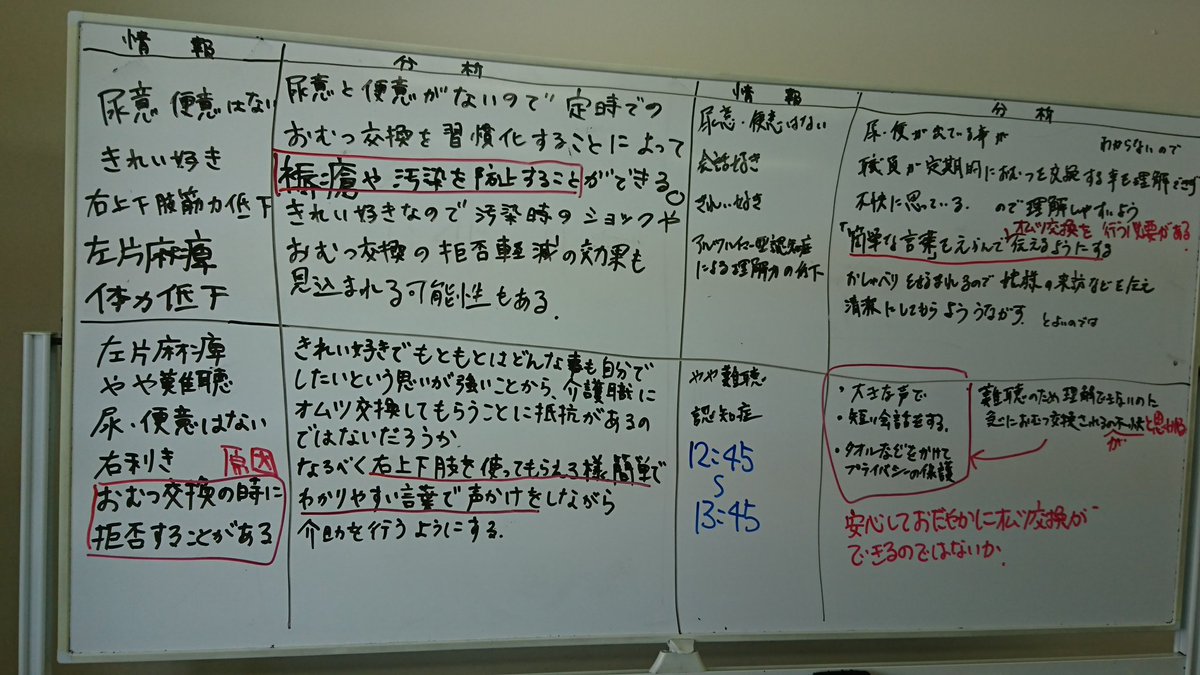 情報
分析
尿意 便意はない
きれい好き
右上下肢筋力低下
左片麻痺
体力低下
尿意と便意がないので 定時での
おむつ交換を習慣化することによって
褥瘡や汚染を防止することができる。
きれい好きなので汚染時のショックや
おむつ交換の拒否軽減の効果も
見込まれる可能性もある.
左片麻痺
やや難聴
尿・便意はない
右利き 原因
おむつ交換の時に
拒否することがある
きれい好きでもともとはどんな事も自分で
したいという思いが強いことから、介護職に
オムツ交換してもらうことに抵抗があるの
ではないだろうか.
なるべく右上下肢を使ってもらえる様、簡単で
わかりやすい言葉で声かけをしながら
介助を行うようにする.
情報
分析
尿意・便意はない
会話好き
きれい好き
アルツハイマー型認知症
による理解力の低下
尿・便が出ている事が わからないので
職員が定期的におむつを交換する事も理解できず
不快に思っている. ので理解しやすいよう
オムツ交換を行う必要がある.
「簡単な言葉」をえらんで伝えるようにする
おしゃべりを好まれるので の来訪などを伝え
清潔にしてもらうよううながす. とよいのでは
やや難聴
認知症
12:45
〜
13:45
・大きな声で
・短い会話をする.
・タオルなどをかけて
プライバシーの保護
難聴のため理解できないのに
急におむつ交換されるの不快と思われる
が
安心しておだやかにオムツ交換が
できるのではないか.